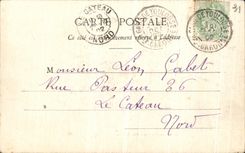 31
CATEAU
NORD
CARTE POSTALE
Ce côté est exclusivement réservé à l'adresse
Monsieur Léon Gabet
Rue Pasteur 66
Le Cateau
Nord